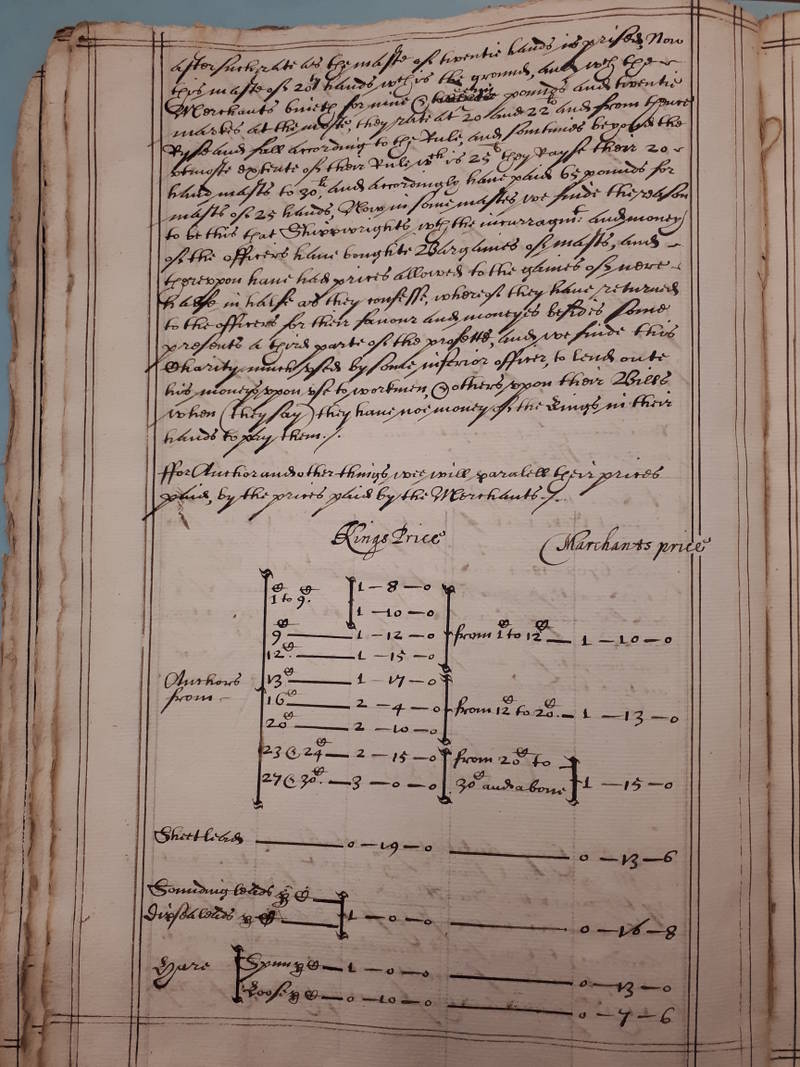 after such rate as the maste of twentie hands is prised, Now
this maste of 20tie hands wch is the ground, and wch the
Merchants buieth for nine & pounds and twentie
markes at the moste, they rate at 20 and 22li and from thence
Ryse and fall according to the Rule, and somtimes beyond the
utmoste extente of their Rule wch is 25li they Rayse their 20
hand masts to 30li, and accordingly have paid 65 pounds for
masts of 25 hands, Now in some mastes we finde the reason
to be this that Shippwrights wth the incurragmt and money
of the officers have boughte Bargaines of masts, and
thereupon have had prices allowed to the gaines of nere
halfe in halfe as they confesse, whereof they have returned
to the officers for their favour and moneyes besides some
presents a third parte of the profette, and we finde this
Charity much used by some inferior officer, to lend oute
his moneys upon use to workmen, & others upon their Bills
when (they say) they have noe money of the Kings in their
hands to pay them ./.
ffor Anchor and other things wee will paralell their prices
paid, by the prices paid by the Merchants ./.
Kings Price Marchants price
1 to 9 1 - 8 - 0
1 - 10 - 0
9 1 - 12 - 0 from 1 to 12 1 - 10 - 0
12 1 - 15 - 0
Anchors 13 1 - 17 - 0
from 16 2 - 4 - 0 from 12 to 20 1 - 13 - 0
20 2 - 10 - 0
23 & 24 2 - 15 - 0 from 20 to
27 & 30 3 - 0 - 0 30 and above 1 - 15 - 0
Sheet lead 0 - 19 - 0 0 - 13 - 6
Sounding leads
Dipsea leads 1 - 0 - 0 0 - 16 - 8
Yarn Spun 1 - 0 - 0 0 - 13 - 0
Loose 0 - 10 - 0 0 - 7 - 6